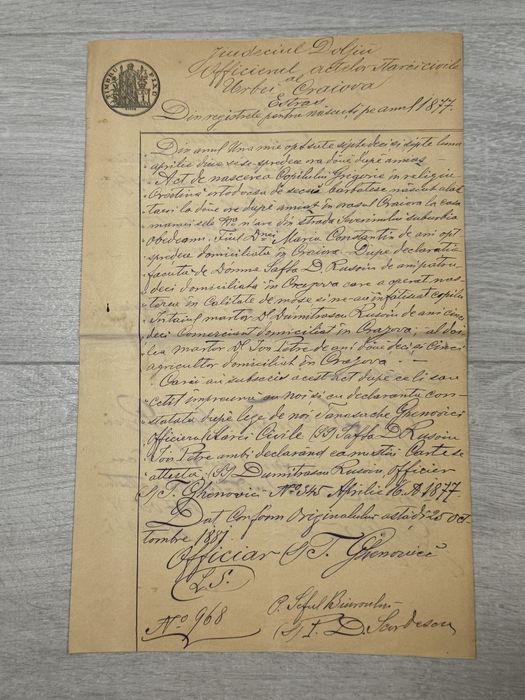 TIMBRU FIX
Județiul Doljiu
Officierul actelor starei civile
al
Urbei Craiova
Extras
Din registrele pentru născuți pe anul 1877.
Din anul una mie opt sute șepte deci și șepte luna
aprilie dioa șese spre dece ora dóue dupe ameaḑi
Act de nascerea Copilului Grigorie în religiu
Creștină ortodoxă de secsu bărbătesc născut alal
taeri la dóue ore dupe ameaḑi în orașul Craiova la casa
mumei sele No n'are din strada Severinului suburbia
Obedeanu. Fiul Dnei Maria Constantin de ani opt
spre dece domiciliată în Craiova. Dupe declarația
facuta de Domna Safta D. Rusoiu de ani patru
deci domiciliată în Craiova care a operat nas
terea în calitate de móse și ne-au înfățișat copilu
Întaiul martor Dl Dumitrascu Rusoiu de ani cinci
deci Comerciant domiciliat în Craiova; al doi
lea martor Dl Ion Petre de ani dóue deci și cinci
agricultor domiciliat în Craiova.
Carii au subscris acest act dupe ce li s'au
cetit împreună cu noi și cu declaranta con
statată dupe lege de noi Tanasache Ghenovici
officieru stărei civile (SS) Safta D. Rusoiu
Ion Petre ambi declarând că nu știu carte se
attestă (SS) Dumitrascu Rusoiu Officier
(S) T. Ghenovici No 345 Aprilie 16 A 1877
Dat conform originalului astăḑi 25 Oc
tombre 1891.
Officiar (S) T. Ghenovici
L.S.
No 968
P. Șeful Biuroului
(S) I. D. Scorbescu